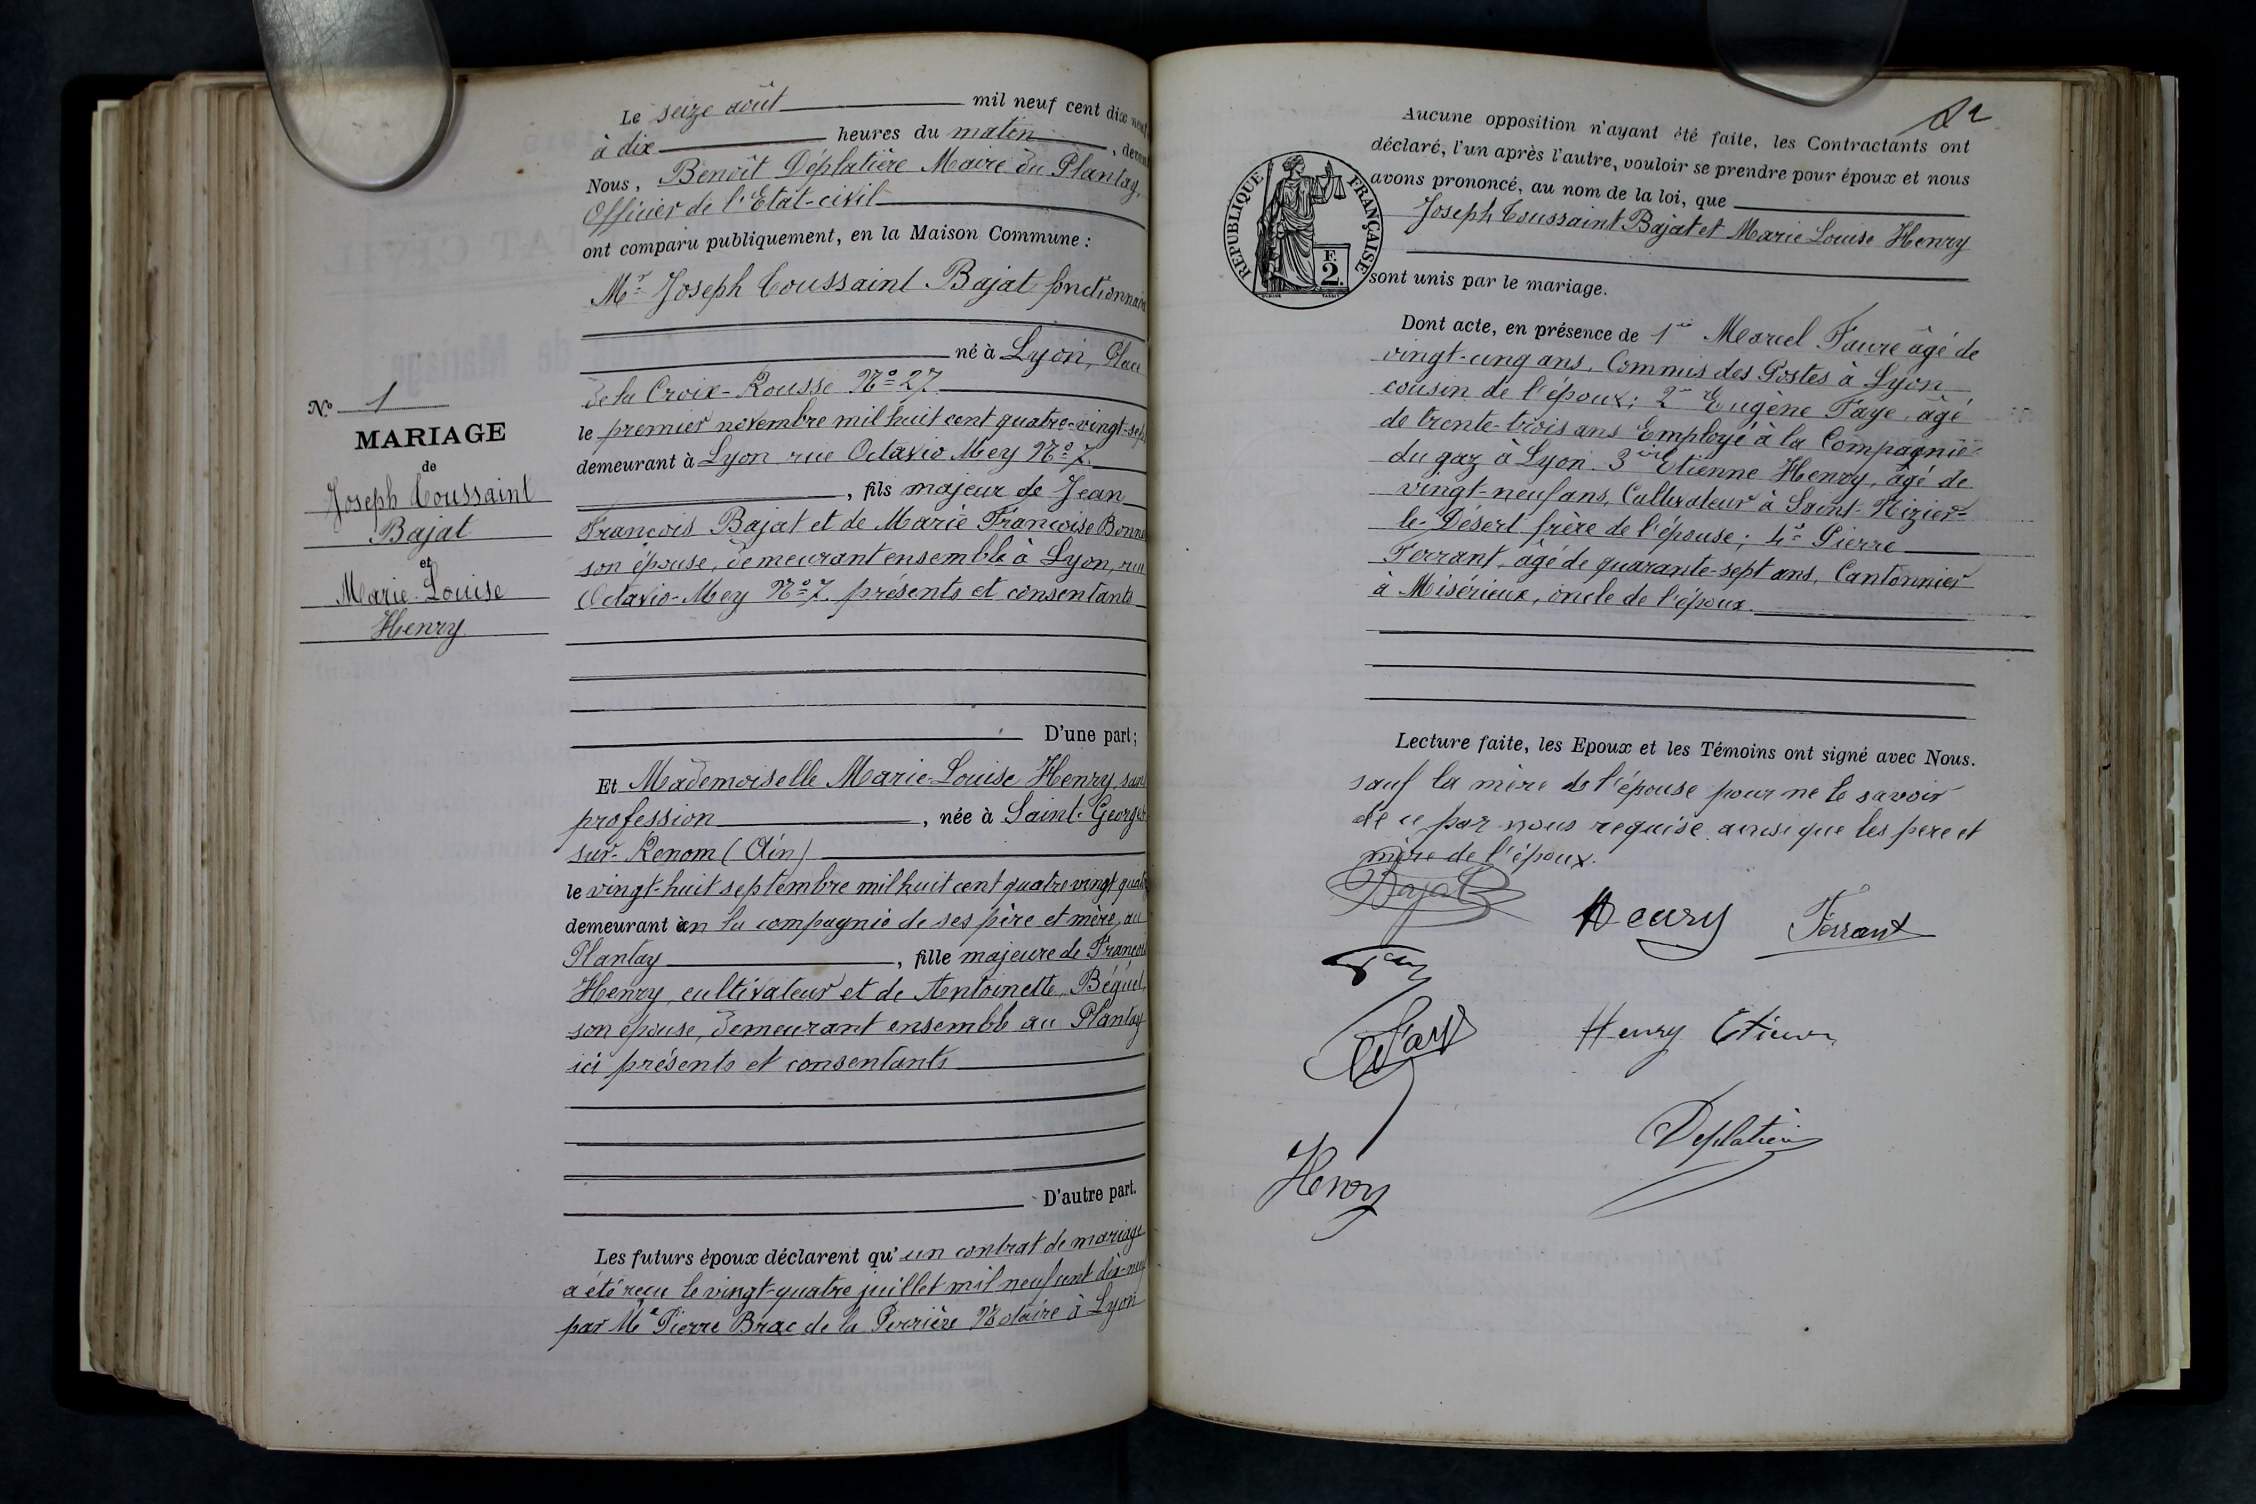 Le seize août mil neuf cent dix neuf
à dix heures du matin, devant
Nous, Benoît Déplatière Maire du Plantay,
Officier de l'Etat-civil
ont comparu publiquement, en la Maison Commune :
Mr Joseph Toussaint Bajat fonctionnaire
né à Lyon, Place
de la Croix-Rousse No 27
le premier novembre mil huit cent quatre-vingt-sept
demeurant à Lyon rue Octavio Mey No 7.
, fils majeur de Jean
François Bajat et de Marie Françoise
son épouse, demeurant ensemble à Lyon, rue
Octavio-Mey No 7. présents et consentants
D'une part;
Et Mademoiselle Marie-Louise Henry, sans
profession, née à Saint-Georges
sur-Renom (Ain)
le vingt-huit septembre mil huit cent quatre vingt
demeurant à en la compagnie de ses père et mère, au
Plantay, fille majeure de François
Henry, cultivateur et de Antoinette Béguet,
son épouse, demeurant ensemble au Plantay
ici présents et consentants
D'autre part.
Les futurs époux déclarent qu'un contrat de mariage
a été reçu le vingt-quatre juillet mil neuf cent dix-neuf
par Me Pierre Brac de la Perrière Notaire à Lyon
No 1
MARIAGE
de
Joseph Toussaint
Bajat
et
Marie-Louise
Henry
Aucune opposition n'ayant été faite, les Contractants ont
déclaré, l'un après l'autre, vouloir se prendre pour époux et nous
avons prononcé, au nom de la loi, que
Joseph Toussaint Bajat et Marie Louise Henry
sont unis par le mariage.
REPUBLIQUE FRANÇAISE
F
2.
Dont acte, en présence de 1er Marcel Faure âgé de
vingt-cinq ans, Commis des Postes à Lyon
cousin de l'époux; 2e Eugène Faye, âgé
de trente-trois ans Employé à la Compagnie
du gaz à Lyon. 3e Etienne Henry, âgé de
vingt-neuf ans, Cultivateur à Saint-Nizier-
le-Désert frère de l'épouse; 4e Pierre
Ferrant, âgé de quarante-sept ans, Cantonnier
à Misérieux, oncle de l'époux.
Lecture faite, les Epoux et les Témoins ont signé avec Nous.
sauf la mère de l'épouse pour ne le savoir
de ce par nous requise ainsi que les pere et
mère de l'époux.
Bajat
Henry
Ferrant
Henry Etienne
Deplatière
Henry